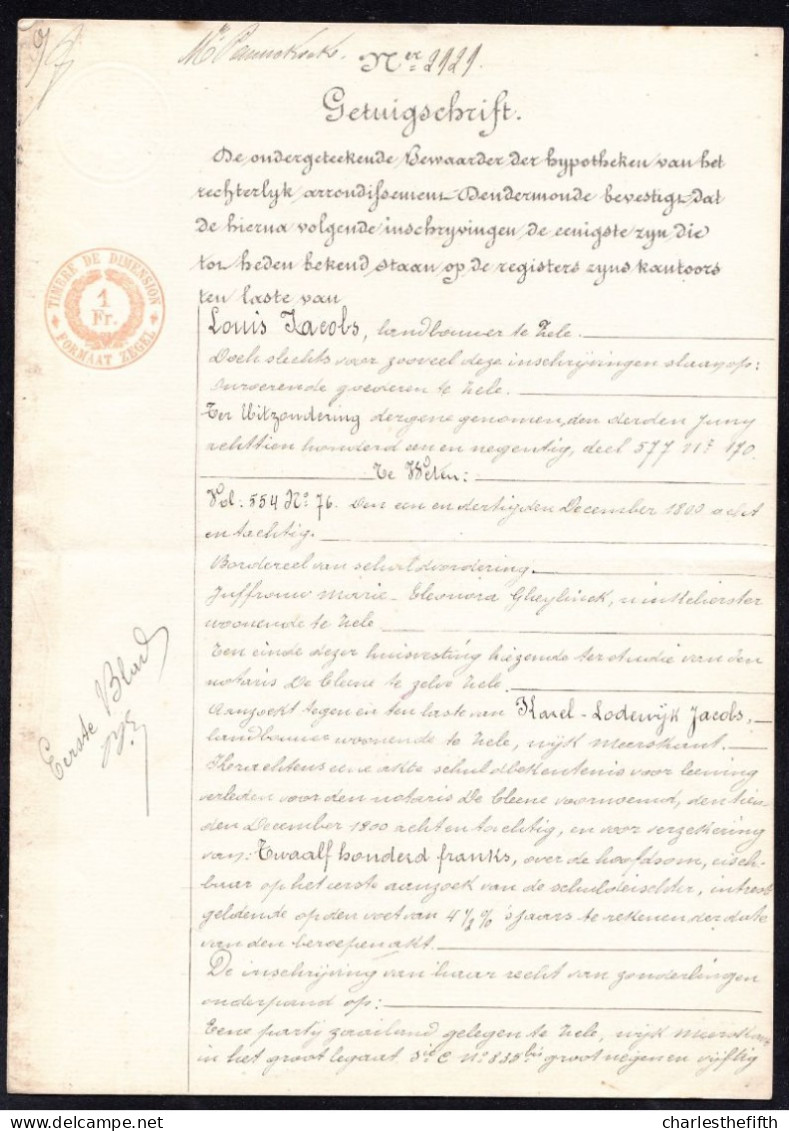 Nr 2121.
Getuigschrift.
De ondergeteekende Bewaarder der hypotheken van het
rechterlyk arrondissement Dendermonde bevestigt dat
de hierna volgende inschryvingen, de eenigste zyn, die
tot heden bekend staan op de registers zyns kantoors
ten laste van
TIMBRE DE DIMENSION
1
Fr.
FORMAAT ZEGEL
Louis Jacobs, landbouwer te Zele.
Doch slechts voor zooveel deze inschrijvingen slaan op:
Onroerende goederen te Zele.
Ter Uitzondering dergene genomen, den derden Juny
achttien honderd een en negentig, deel 577 nr 170.
Te Weten:
Vol: 554 No 76. Den een en dertigsten December 1800 acht
en tachtig.
Bordereel van schuldvordering.
Juffrouw Marie-Eleonora Gheylinck, winkelierster
woonende te Zele
Ten einde dezer huisvesting kiezende ter studie van den
notaris De Cleene te zelve Zele.
Aanzoekt tegen en ten laste van Karel-Lodewijk Jacobs,
landbouwer woonende te Zele, wijk Meerskant.
Krachtens eene akte schuldbekentenis voor leening
verleden voor den notaris De Cleene voornoemd, den tien
den December 1800 acht en tachtig, en voor verzekering
van: Twaalf honderd franks, over de hoofdsom, eisch-
baar op het eerste aanzoek van de schuldeischter, intrest
geldende op den voet van 4 1/2 % 's jaars te rekenen der date
van den beroepen akt.
De inschrijving van haar recht van zonderlingen
onderpand op:
Eerste Blad
Eene partij zaailand gelegen te Zele, wijk Meerskant
in het groot legaat Sie C No 835bis groot negen en vijftig
https://www.delcampe.net
charlesthefifth